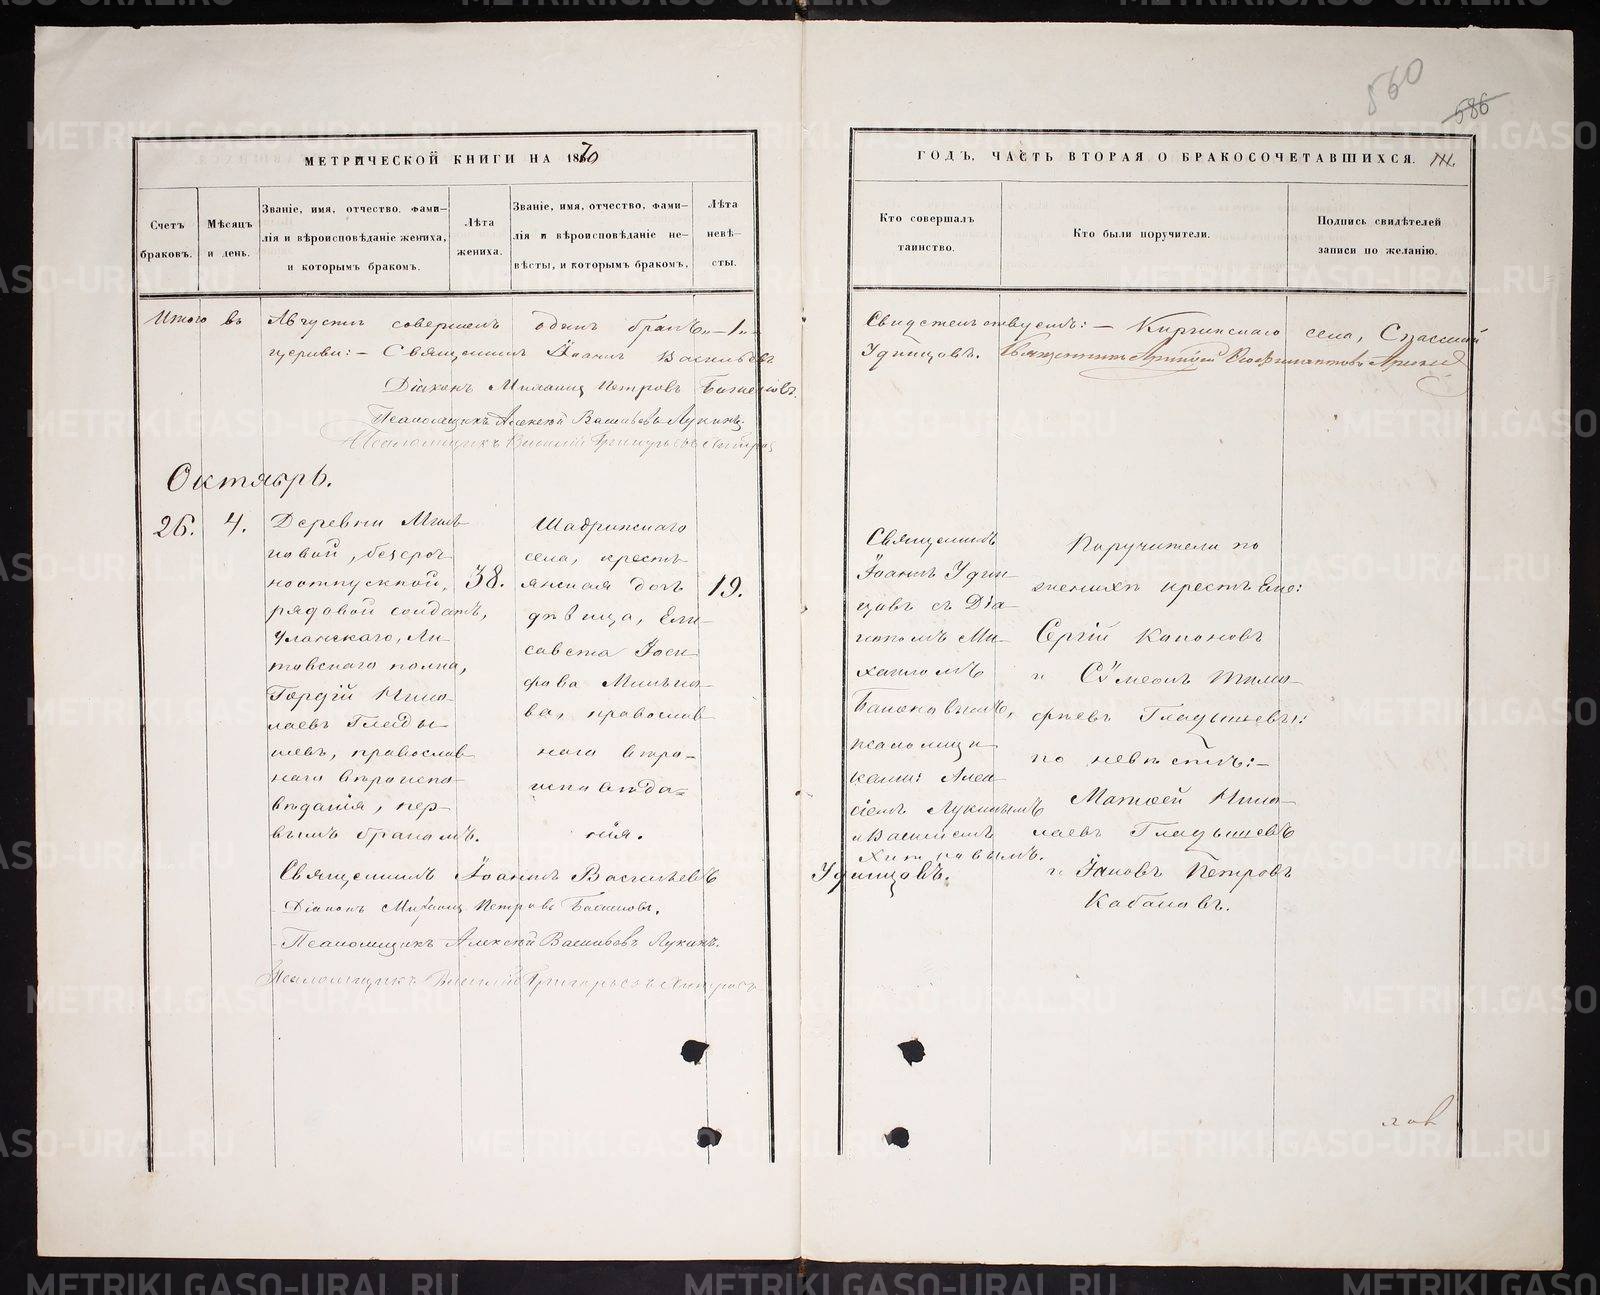 560
686
МЕТРИЧЕСКОЙ КНИГИ НА 1870
ГОДЪ, ЧАСТЬ ВТОРАЯ О БРАКОСОЧЕТАВШИХСЯ.
Счетъ браковъ.
Мѣсяцъ и день.
Званіе, имя, отчество, фами-
лія и вѣроисповѣданіе жениха,
и которымъ бракомъ.
Лѣта жениха.
Званіе, имя, отчество, фами-
лія и вѣроисповѣданіе не-
вѣсты, и которымъ бракомъ.
Лѣта невѣ-
сты.
Кто совершалъ
таинство.
Кто были поручители.
Подпись свидѣтелей
записи по желанію.
Итого въ Августѣ совершенъ одинъ бракъ „—1„—
Свидетельствуемъ: — Киргинскаго села, Спасской
церкви: — Священникъ Іоаннъ Васильевъ
Удинцовъ.
Діаконъ Михаилъ Петровъ Баженовъ.
Псаломщикъ Алексѣй Васильевъ Лукинъ.
Псаломщикъ Василій Григорьевъ
Октябрь.
26.
4.
Деревни
новой, безсроч
ноотпускной,
рядовой солдатъ,
Уланскаго, Ли-
товскаго полка,
Гордій Нико-
лаевъ Глады-
шевъ, православ
наго вѣроиспо-
вѣданія, пер-
вымъ бракомъ.
38.
Шадринскаго
села, кресть
янская дочь
дѣвица, Ели-
савета Іоси-
фова Минѣе-
ва, православ
наго вѣро-
исповѣда=
нія.
19.
Священникъ
Іоаннъ Удин-
цовъ съ Діа-
кономъ Ми-
хаиломъ
Баженовымъ,
псаломщи
ками: Алек
сіемъ Лукинымъ
и Василіемъ
Хитровымъ.
Поручители по
женихѣ крестьяне:
Сергій Капоновъ
и Сѵмеонъ Тимо-
фѣевъ Гладышевы:
по невѣстѣ: —
Матѳей Нико-
лаевъ Гладышевъ
и Іаковъ Петровъ
Кабановъ.
Священникъ Іоаннъ Васильевъ
Удинцовъ.
Діаконъ Михаилъ Петровъ Баженовъ.
Псаломщикъ Алексѣй Васильевъ Лукинъ.
Псаломщикъ Василій Григорьевъ Хитровъ
METRIKI.GASO-URAL.RU